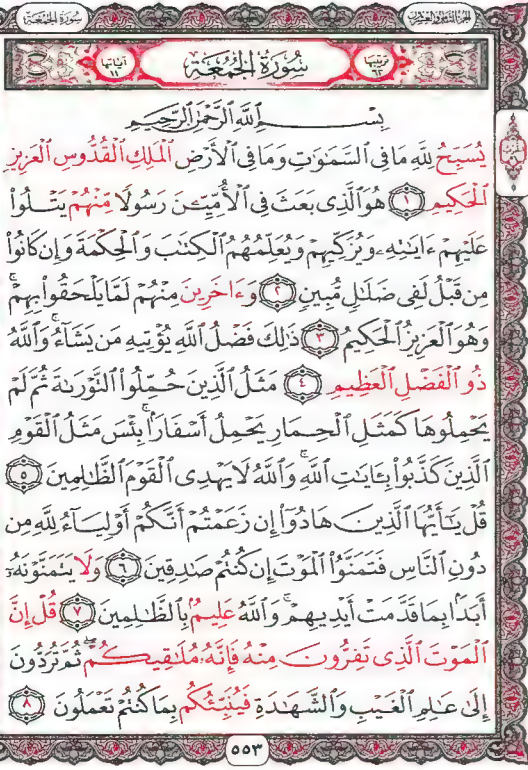 سُورَةُ الجُمُعَةِ
الجزء الثامن والعشرون
ترتيبها ٦٢
سُورَةُ الجُمُعَةِ
آياتها ١١
بِسْمِ ٱللَّهِ ٱلرَّحْمَٰنِ ٱلرَّحِيمِ
يُسَبِّحُ لِلَّهِ مَا فِي ٱلسَّمَٰوَٰتِ وَمَا فِي ٱلْأَرْضِ ٱلْمَلِكِ ٱلْقُدُّوسِ ٱلْعَزِيزِ
ٱلْحَكِيمِ ١ هُوَ ٱلَّذِي بَعَثَ فِي ٱلْأُمِّيِّـۧنَ رَسُولًا مِّنْهُمْ يَتْلُوا۟
عَلَيْهِمْ ءَايَٰتِهِۦ وَيُزَكِّيهِمْ وَيُعَلِّمُهُمُ ٱلْكِتَٰبَ وَٱلْحِكْمَةَ وَإِن كَانُوا۟
مِن قَبْلُ لَفِي ضَلَٰلٍ مُّبِينٍ ٢ وَءَاخَرِينَ مِنْهُمْ لَمَّا يَلْحَقُوا۟ بِهِمْ ۚ
وَهُوَ ٱلْعَزِيزُ ٱلْحَكِيمُ ٣ ذَٰلِكَ فَضْلُ ٱللَّهِ يُؤْتِيهِ مَن يَشَآءُ ۚ وَٱللَّهُ
ذُو ٱلْفَضْلِ ٱلْعَظِيمِ ٤ مَثَلُ ٱلَّذِينَ حُمِّلُوا۟ ٱلتَّوْرَىٰةَ ثُمَّ لَمْ
يَحْمِلُوهَا كَمَثَلِ ٱلْحِمَارِ يَحْمِلُ أَسْفَارًۢا ۚ بِئْسَ مَثَلُ ٱلْقَوْمِ
ٱلَّذِينَ كَذَّبُوا۟ بِـَٔايَٰتِ ٱللَّهِ ۚ وَٱللَّهُ لَا يَهْدِي ٱلْقَوْمَ ٱلظَّٰلِمِينَ ٥
قُلْ يَٰٓأَيُّهَا ٱلَّذِينَ هَادُوٓا۟ إِن زَعَمْتُمْ أَنَّكُمْ أَوْلِيَآءُ لِلَّهِ مِن
دُونِ ٱلنَّاسِ فَتَمَنَّوُا۟ ٱلْمَوْتَ إِن كُنتُمْ صَٰدِقِينَ ٦ وَلَا يَتَمَنَّوْنَهُۥٓ
أَبَدًۢا بِمَا قَدَّمَتْ أَيْدِيهِمْ ۚ وَٱللَّهُ عَلِيمٌۢ بِٱلظَّٰلِمِينَ ٧ قُلْ إِنَّ
ٱلْمَوْتَ ٱلَّذِي تَفِرُّونَ مِنْهُ فَإِنَّهُۥ مُلَٰقِيكُمْ ۖ ثُمَّ تُرَدُّونَ
إِلَىٰ عَٰلِمِ ٱلْغَيْبِ وَٱلشَّهَٰدَةِ فَيُنَبِّئُكُم بِمَا كُنتُمْ تَعْمَلُونَ ٨
٥٥٣